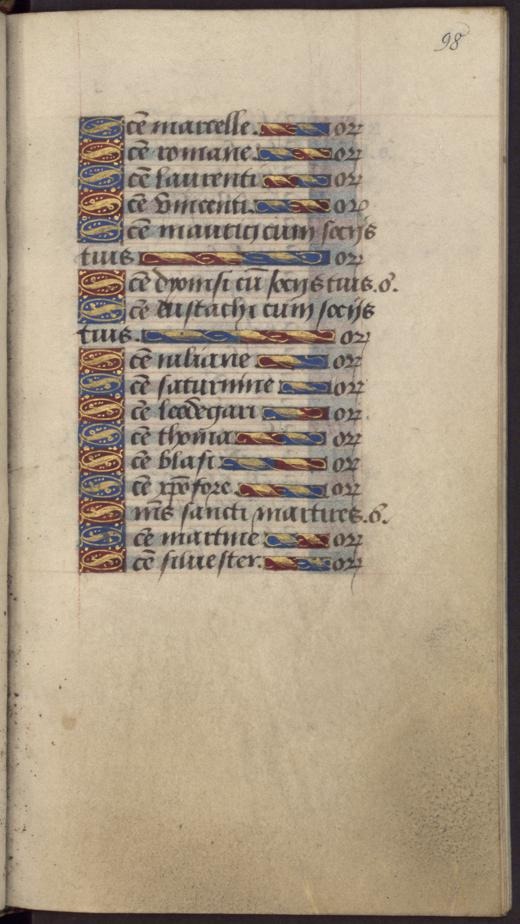 98
Scē marcelle. or
Scē romane. or
Scē laurenti or
Scē vincenti. or
Scē mauricij cum socijs
tuis or
Scē dyonisi cū socijs tuis. o.
Scē eustachi cum socijs
tuis. or
Scē iuliane or
Scē saturnine or
Scē leodegari or
Scē thoma or
Scē blasi or
Scē xp̄ofore. or
Om̄s sancti martires. o.
Scē martine or
Scē siluester. or